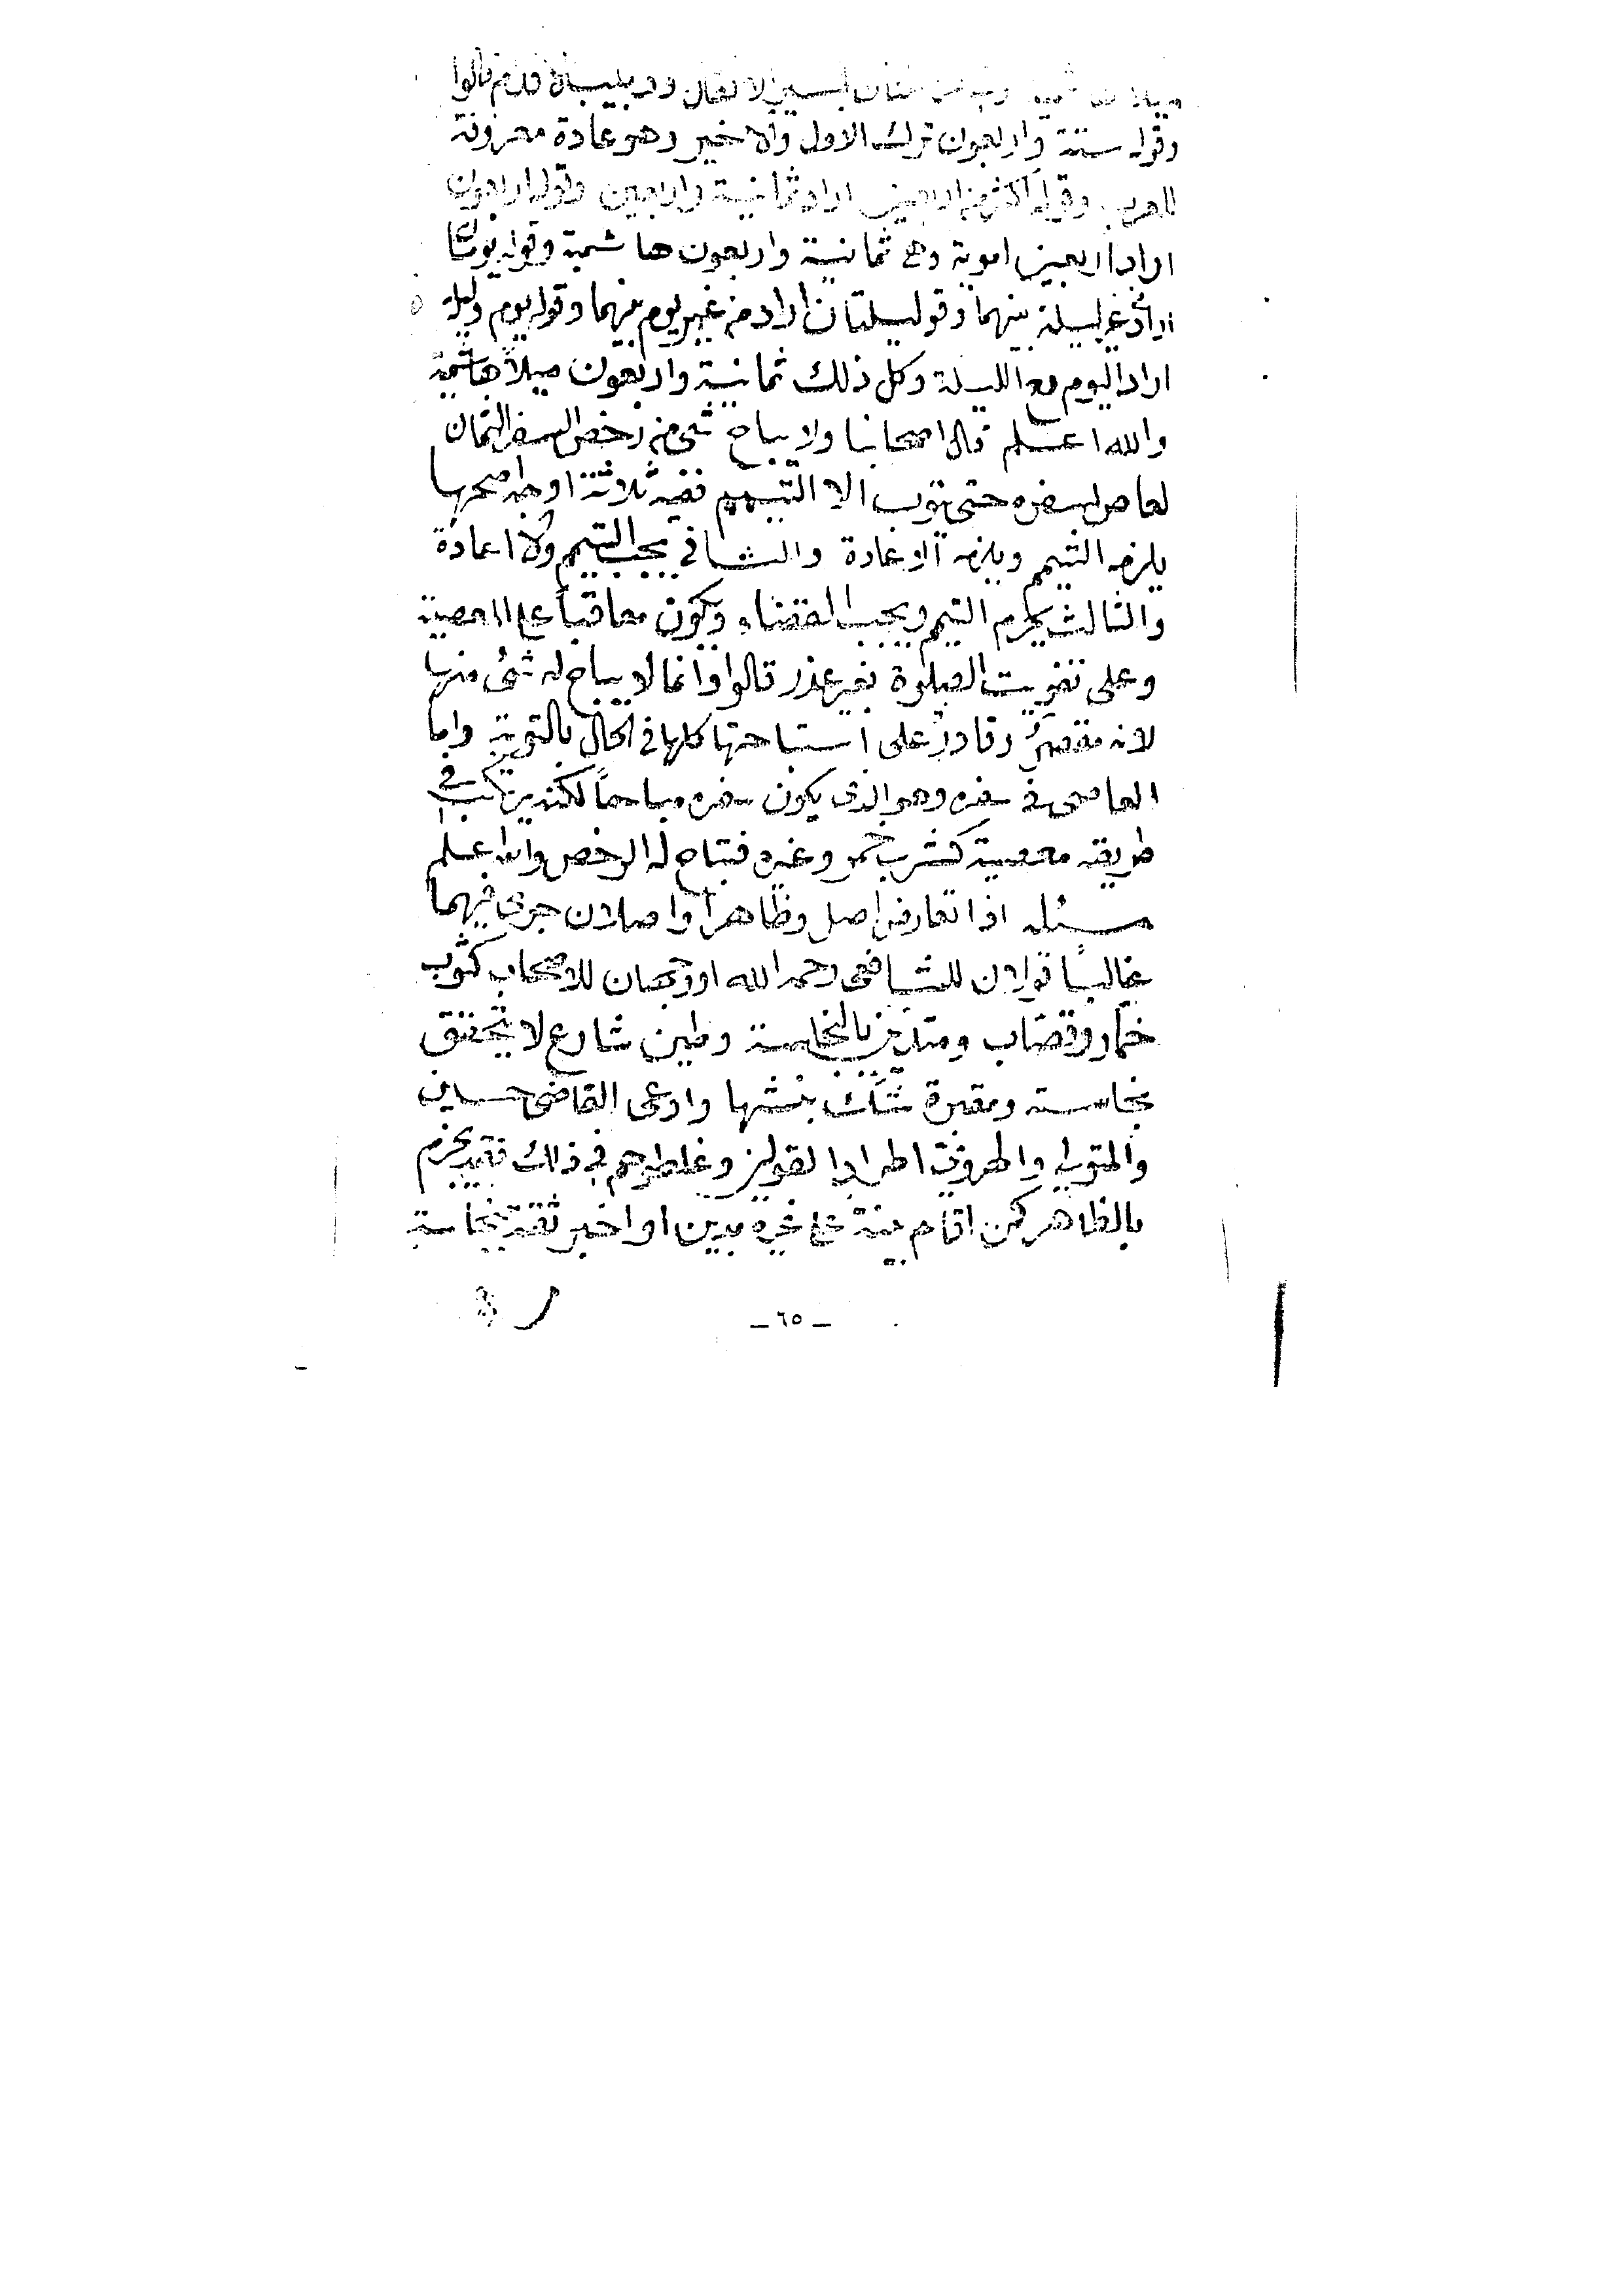 قالوا
وقوله ستة واربعون ترك الاول والاخير وهو عادة معروفة
للعرب وقوله اكثر من اربعين اراد ثمانية واربعين وقوله اربعون
اراد اربعين اموية وهي ثمانية واربعون هاشمية وقوله يومان
اراد غير ليلة بينهما وقوله ليلتان اراد من غير يوم بينهما وقوله يوم وليلة
اراد اليوم مع الليلة وكل ذلك ثمانية واربعون ميلاً هاشمية
والله اعلم قال اصحابنا ولا يباح شئ من رخص السفر الثمان
لعاص بسفره حتى يتوب الا التيمم ففيه ثلاثة اوجه اصحها
يلزمه التيمم ويلزمه الاعادة والثاني يجب التيمم ولا اعادة
والثالث يحرم التيمم ويجب القضاء ويكون معاقباً على المعصية
وعلى تفويت الصلوة بغير عذر قالوا وانما لا يباح له شئ منها
لانه مقصرٌ وقادرٌ على استباحتها كلها في الحال بالتوبة واما
العاصى في سفره وهو الذى يكون سفره مباحاً لكنه يرتكب في
طريقه معصية كشرب خمر وغيره فتباح له الرخص والله اعلم
مسئله اذا تعارض اصل وظاهر او اصلان جرى فيهما
غالبًا قولان للشافعى رحمه الله او وجهان للاصحاب كثوب
خمّار وقصّاب ومتدين بالنجاسة وطين شارع لا يتحقق
نجاسته ومقبرة شكّ بنبشها وادعى القاضى حسين
والمتولي والهروي اطراد القولين وغلطوهم في ذلك فقد يجزم
بالظاهر كمن اقام بينة على غيره بدين او اخبر ثقة بنجاسة
_ ٦٥ _